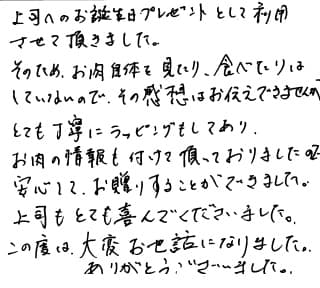 上司へのお誕生日プレゼントとして利用
させて頂きました。
そのため、お肉自体を見たり、食べたりは
していないので、その感想はお伝えできませんが
とても丁寧にラッピングもしてあり、
お肉の情報も付けて頂いておりましたので
安心して、お贈りすることができました。
上司もとても喜んでくださいました。
この度は、大変お世話になりました。
ありがとうございました。